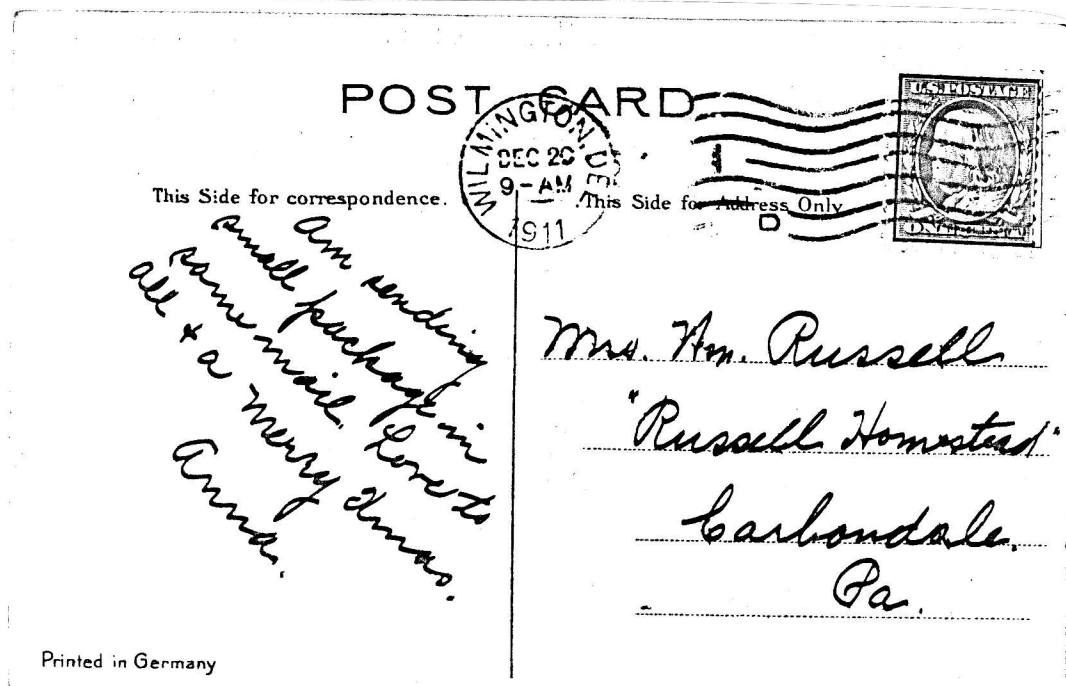 POST CARD
WILMINGTON, DEL.
DEC 20
9-AM
1911
U.S. POSTAGE
1
D
This Side for correspondence.
This Side for Address Only
Am sending
small package in
same mail. Love to
all + a Merry Xmas.
Anna.
Mrs. Wm. Russell
"Russell Homestead"
Carbondale,
Pa.
Printed in Germany